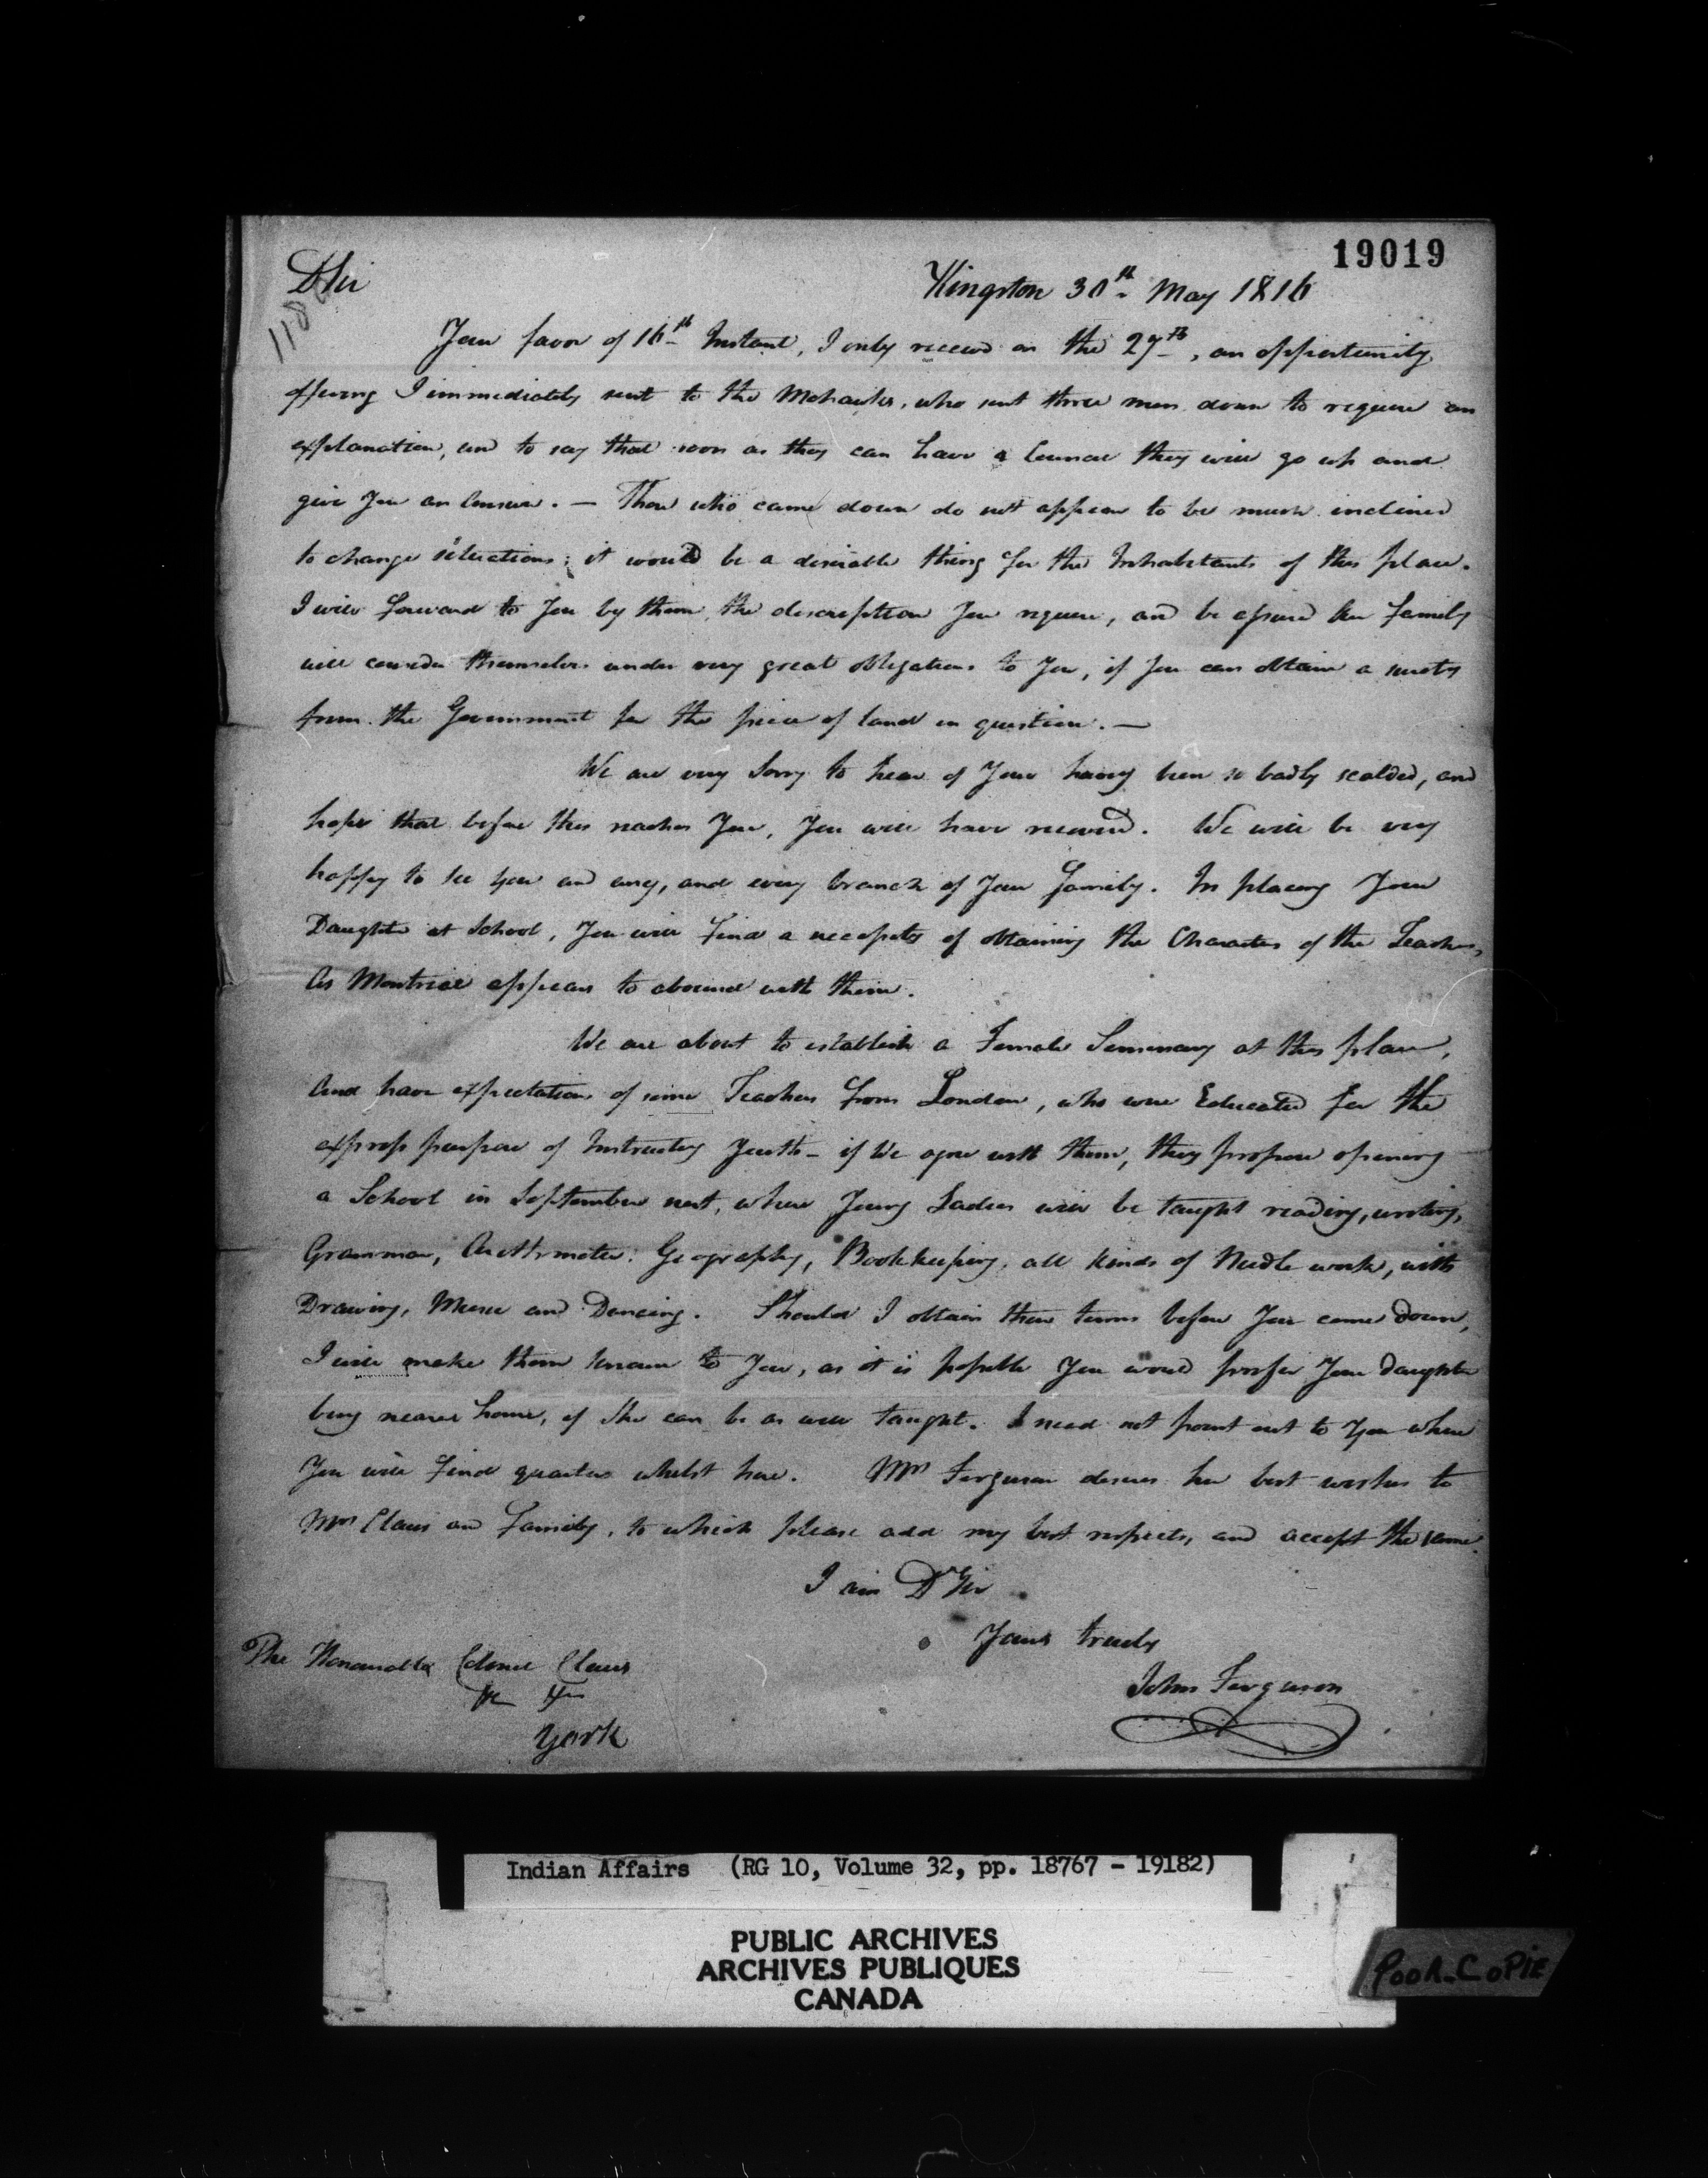 19019
D Sir
Kingston 30th May 1816
118
Your favor of 16th Instant, I only received on the 27th, an opportunity
offering I immediately sent to the Mohawks, who sent three men down to require an
explanation, and to say that soon as they can have a Council they will go up and
give You an Answer. — Those who came down do not appear to be much inclined
to change situations; it would be a desirable thing for the Inhabitants of this place.
I will forward to You by them, the description You require, and be assured the family
will consider themselves under very great obligations to You, if You can obtain a surety
from the Government for the piece of land in question. —
We are very Sorry to hear of Your having been so badly scalded, and
hope that before this reaches You, You will have recovered. We will be very
happy to see you and any, and every branch of Your family. In placing Your
Daughter at School, You will find a necessity of obtaining the Character of the Teacher,
As Montreal appears to abound with them.
We are about to establish a Female Seminary at this place,
And have expectations of some Teachers from London, who were Educated for the
express purpose of Instructing Youth — if We agree with them, they propose opening
a School in September next, where Young Ladies will be taught reading, writing,
Grammar, Arithmetic, Geography, Bookkeeping, all kinds of Needle work, with
Drawing, Music and Dancing. Should I obtain their terms before You come down,
I will make them known to You, as it is possible You would prefer Your daughter
being nearer home, if She can be as well taught. I need not point out to You where
You will find quarters whilst here. Mrs Ferguson desires her best wishes to
Mrs Claus and Family, to which please add my best respects, and accept the same.
I am Dr Sir
Yours truly
John Ferguson
The Honourable Colonel Claus
&c &c
York
Indian Affairs (RG 10, Volume 32, pp. 18767 - 19182)
PUBLIC ARCHIVES
ARCHIVES PUBLIQUES
CANADA
POOR COPIE